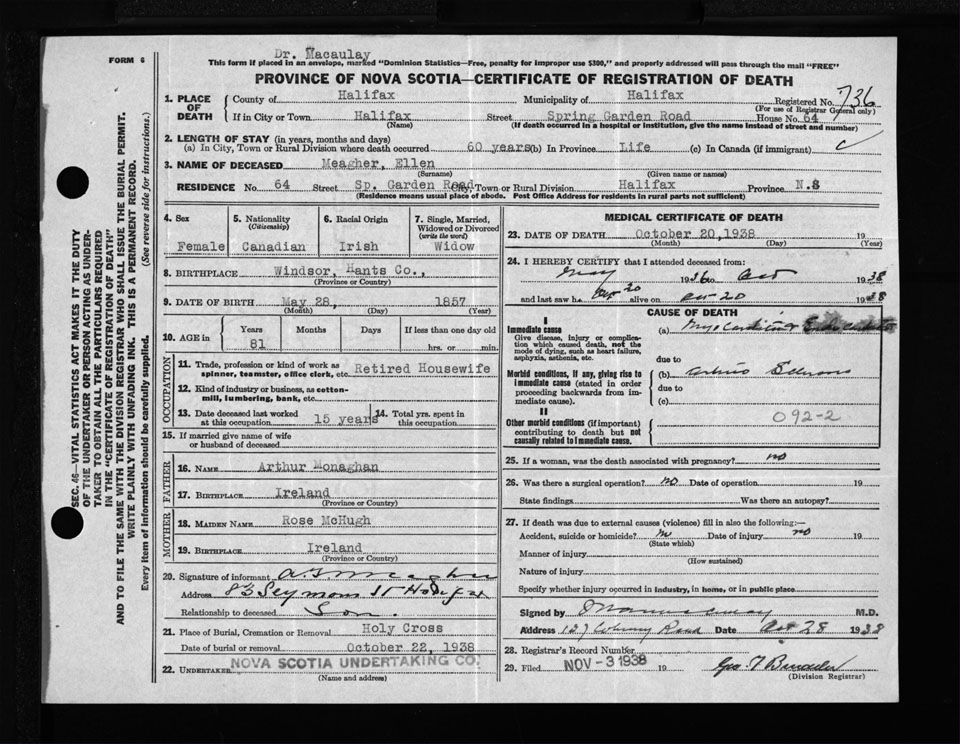 Dr. Macaulay
FORM 6
This form if placed in an envelope, marked "Dominion Statistics—Free, penalty for improper use $300," and properly addressed will pass through the mail "FREE"
PROVINCE OF NOVA SCOTIA—CERTIFICATE OF REGISTRATION OF DEATH
SEC. 46—VITAL STATISTICS ACT MAKES IT THE DUTY
OF THE UNDERTAKER OR PERSON ACTING AS UNDER-
TAKER TO OBTAIN ALL THE PARTICULARS REQUIRED
IN THE "CERTIFICATE OF REGISTRATION OF DEATH"
AND TO FILE THE SAME WITH THE DIVISION REGISTRAR WHO SHALL ISSUE THE BURIAL PERMIT.
WRITE PLAINLY WITH UNFADING INK. THIS IS A PERMANENT RECORD.
Every item of information should be carefully supplied. (See reverse side for instructions.)
1. PLACE OF DEATH County of Halifax Municipality of Halifax Registered No. 736
(For use of Registrar General only)
If in City or Town Halifax Street Spring Garden Road House No. 64
(Name) (If death occurred in a hospital or institution, give the name instead of street and number)
2. LENGTH OF STAY (in years, months and days)
(a) In City, Town or Rural Division where death occurred 60 years (b) In Province Life (c) In Canada (if immigrant)
3. NAME OF DECEASED Meagher, Ellen
(Surname) (Given name or names)
RESIDENCE No. 64 Street Sp. Garden Road City, Town or Rural Division Halifax Province N.S
(Residence means usual place of abode. Post Office Address for residents in rural parts not sufficient)
4. Sex Female
5. Nationality (Citizenship) Canadian
6. Racial Origin Irish
7. Single, Married, Widowed or Divorced (write the word) Widow
8. BIRTHPLACE Windsor, Hants Co.,
(Province or Country)
9. DATE OF BIRTH May 28, 1857
(Month) (Day) (Year)
10. AGE in Years Months Days If less than one day old
81 hrs. or min.
OCCUPATION
11. Trade, profession or kind of work as spinner, teamster, office clerk, etc. Retired Housewife
12. Kind of industry or business, as cotton-mill, lumbering, bank, etc.
13. Date deceased last worked at this occupation 15 years
14. Total yrs. spent in this occupation
15. If married give name of wife or husband of deceased
FATHER
16. NAME Arthur Monaghan
17. BIRTHPLACE Ireland
(Province or Country)
MOTHER
18. MAIDEN NAME Rose McHugh
19. BIRTHPLACE Ireland
(Province or Country)
20. Signature of informant
Address 83 Seymour St Halifax
Relationship to deceased Son.
21. Place of Burial, Cremation or Removal Holy Cross
Date of burial or removal October 22, 1938
22. UNDERTAKER NOVA SCOTIA UNDERTAKING CO.
(Name and address)
MEDICAL CERTIFICATE OF DEATH
23. DATE OF DEATH October 20, 1938 19
(Month) (Day) (Year)
24. I HEREBY CERTIFY that I attended deceased from:
May 1936 to Oct 1938
and last saw h alive on Oct 20 1938
CAUSE OF DEATH
I
Immediate cause
Give disease, injury or complica-
tion which caused death, not the
mode of dying, such as heart failure,
asphyxia, asthenia, etc.
(a)
due to
Morbid conditions, if any, giving rise to
immediate cause (stated in order
proceeding backwards from im-
mediate cause).
(b)
due to
(c)
II
Other morbid conditions (if important)
contributing to death but not
causally related to immediate cause.
092-2
25. If a woman, was the death associated with pregnancy? no
26. Was there a surgical operation? no Date of operation 19
State findings Was there an autopsy?
27. If death was due to external causes (violence) fill in also the following:—
Accident, suicide or homicide? Date of injury no 19
(State which)
Manner of injury
(How sustained)
Nature of injury
Specify whether injury occurred in industry, in home, or in public place
Signed by M.D.
Address Date Oct 28 1938
28. Registrar's Record Number
29. Filed NOV - 3 1938 19
(Division Registrar)